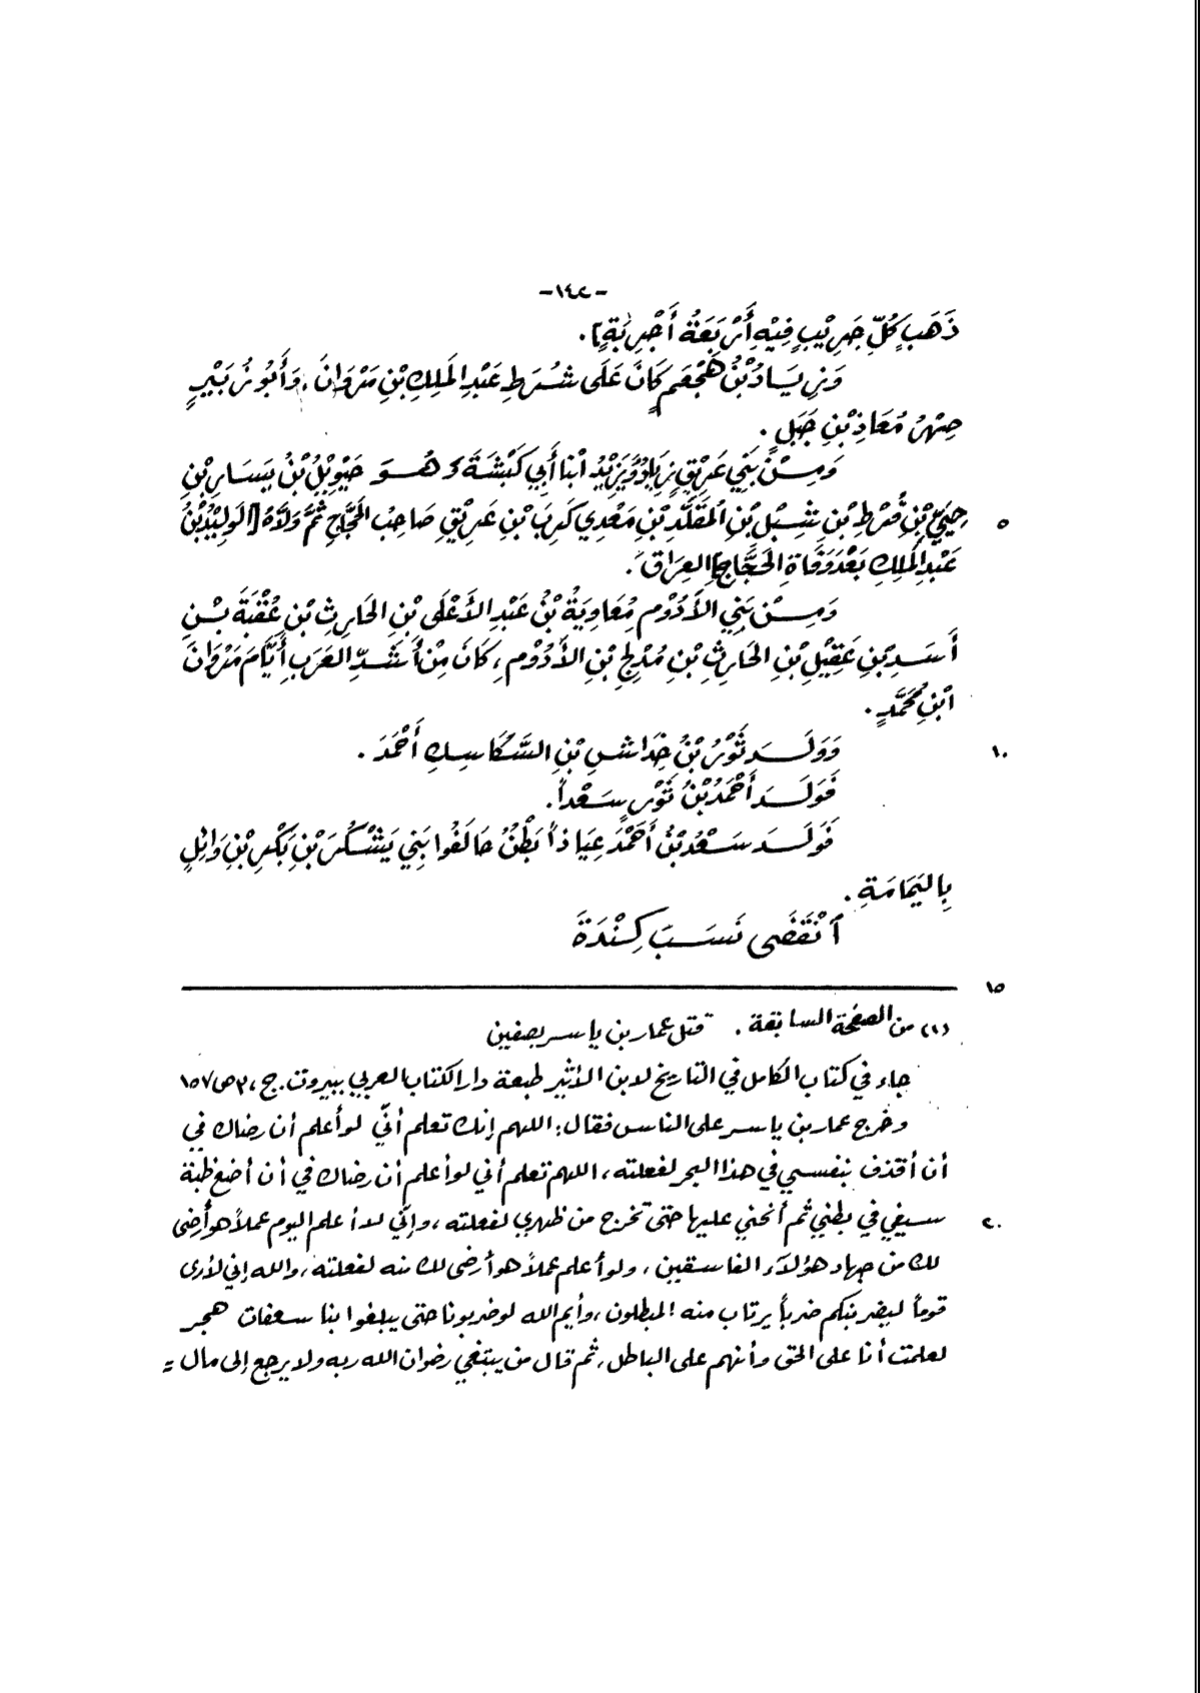 -١٤٢-
ذَهَبٍ كُلِّ جَرِيْبٍ فِيْهِ أَرْبَعَةُ أَجْرِبَةٍ].
وَزِيَادُ بْنُ هَجْعَمٍ كَانَ عَلَى شُرَطِ عَبْدِ المَلِكِ بْنِ مَرْوَانَ، وَأَبُو زُبَيْرٍ
صِهْرُ مُعَاذِ بْنِ جَبَلٍ.
وَمِنْ بَنِي عَرِيْقٍ زِيَادُ وَيَزِيْدُ ابْنَا أَبِي كَبْشَةَ وَهُوَ حَيْوِيْلُ بْنُ يَسَارِ بْنِ
حِيَيِّ بْنِ قُرْطِ بْنِ شِبْلِ بْنِ المُقَلَّدِ بْنِ مَعْدِي كَرِبَ بْنِ عَرِيْقٍ صَاحِبُ الحَجَّاجِ ثُمَّ وَلَّاهُ [الوَلِيْدُ بْنُ
٥
عَبْدِ المَلِكِ بَعْدَ وَفَاةِ الحَجَّاجِ] العِرَاقَ.
وَمِنْ بَنِي الأَدْوَمِ مُعَاوِيَةُ بْنُ عَبْدِ الأَعْلَى بْنِ الحَارِثِ بْنِ عُقْبَةَ بْنِ
أَسَدِ بْنِ عَقِيْلِ بْنِ الحَارِثِ بْنِ مُدْلِجِ بْنِ الأَدْوَمِ، كَانَ مِنْ أَشَدِّ العَرَبِ أَيَّامَ مَرْوَانَ
ابْنِ مُحَمَّدٍ.
وَوَلَدَ ثَوْرُ بْنُ خِدَاشِ بْنِ السَّكَاسِكِ أَحْمَدَ.
١٠
فَوَلَدَ أَحْمَدُ بْنُ ثَوْرٍ سَعْداً.
فَوَلَدَ سَعْدُ بْنُ أَحْمَدَ عِيَاذاً بَطْنٌ حَالَفُوا بَنِي يَشْكُرَ بْنِ بَكْرِ بْنِ وَائِلٍ
بِاليَمَامَةِ.
اَنْقَضَى نَسَبُ كِنْدَةَ
١٥
(١) من الصفحة السابقة. قتل عمار بن ياسر بصفين
جاء في كتاب الكامل في التاريخ لابن الأثير طبعة دار الكتاب العربي ببيروت. ج، ٣ ص ١٥٧
وخرج عمار بن ياسر على الناس فقال: اللهم إنك تعلم أنّي لو أعلم أن رضاك في
أن أقذف بنفسي في هذا البحر لفعلته، اللهم تعلم أني لو أعلم أن رضاك في أن أضع ظبة
سيفي في بطني ثم أنحني عليها حتى تخرج من ظهري لفعلته، وإنّي لا أعلم اليوم عملاً هو أرضى
٢٠
لك من جهاد هؤلاء الفاسقين، ولو أعلم عملاً هو أرضى لك منه لفعلته، والله إني لأرى
قوماً ليضربنكم ضرباً يرتاب منه المبطلون، وأيم الله لو ضربونا حتى يبلغوا بنا سعفات هجر
لعلمت أنا على الحق وأنهم على الباطل، ثم قال من يبتغي رضوان الله ربه ولا يرجع إلى مال =